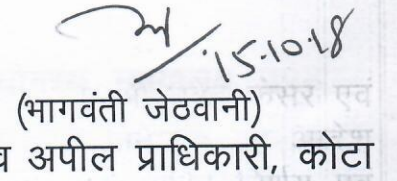 15.10.18
(भागवंती जेठवानी)
व अपील प्राधिकारी, कोटा